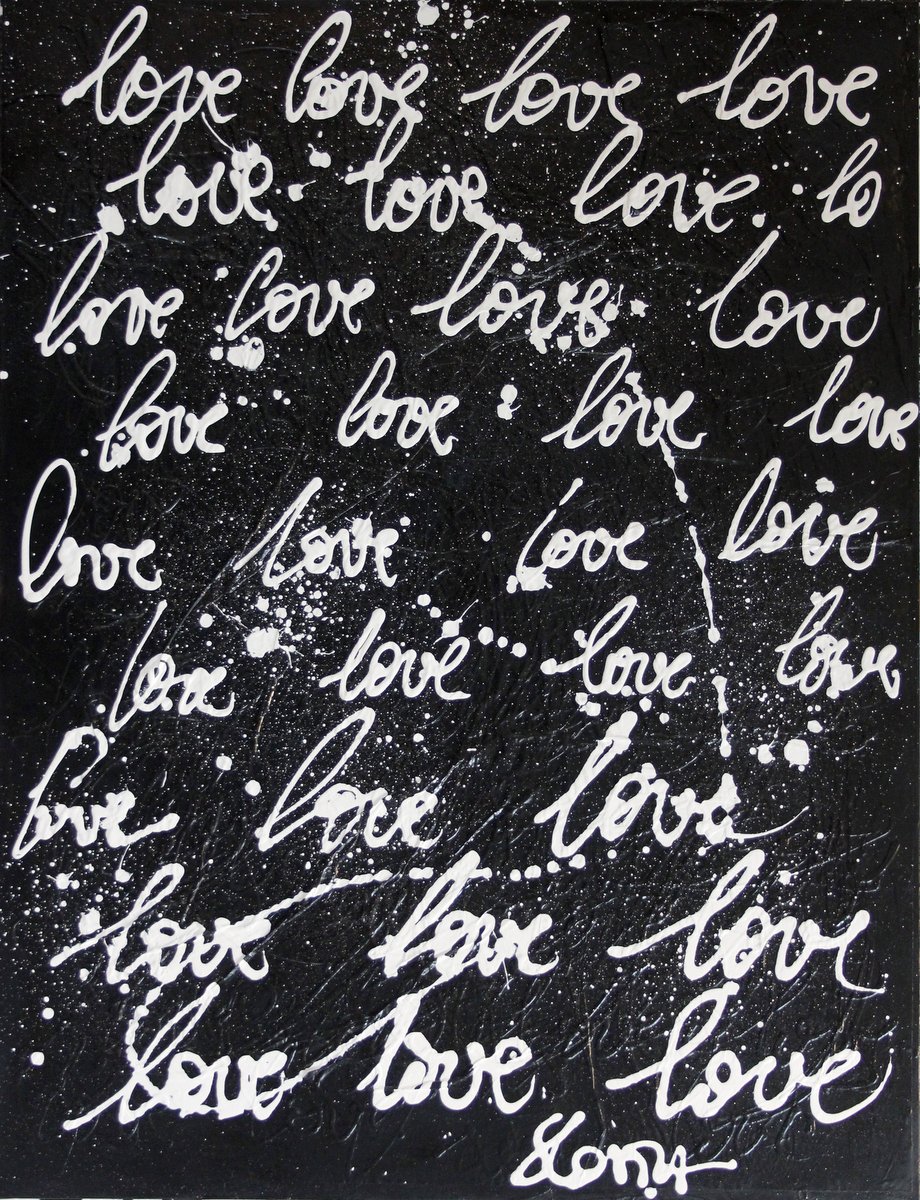 love love love love
love love love lo
love love love love
love love love love
love love love love
love love love love
love love love
love love love
love love love